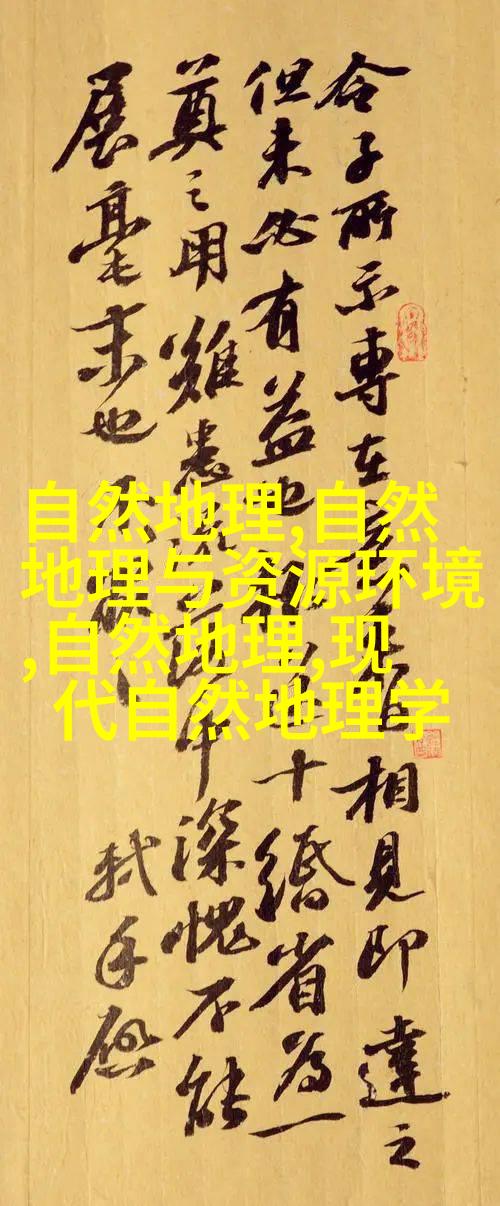 令子所示專在 相見即達之
但未必有益也 十緡省為一
奠之用難患 中深愧不能
展毫末也不 軾手啟
自然地理,自然
地理与资源环境
,自然地理,现
代自然地理学